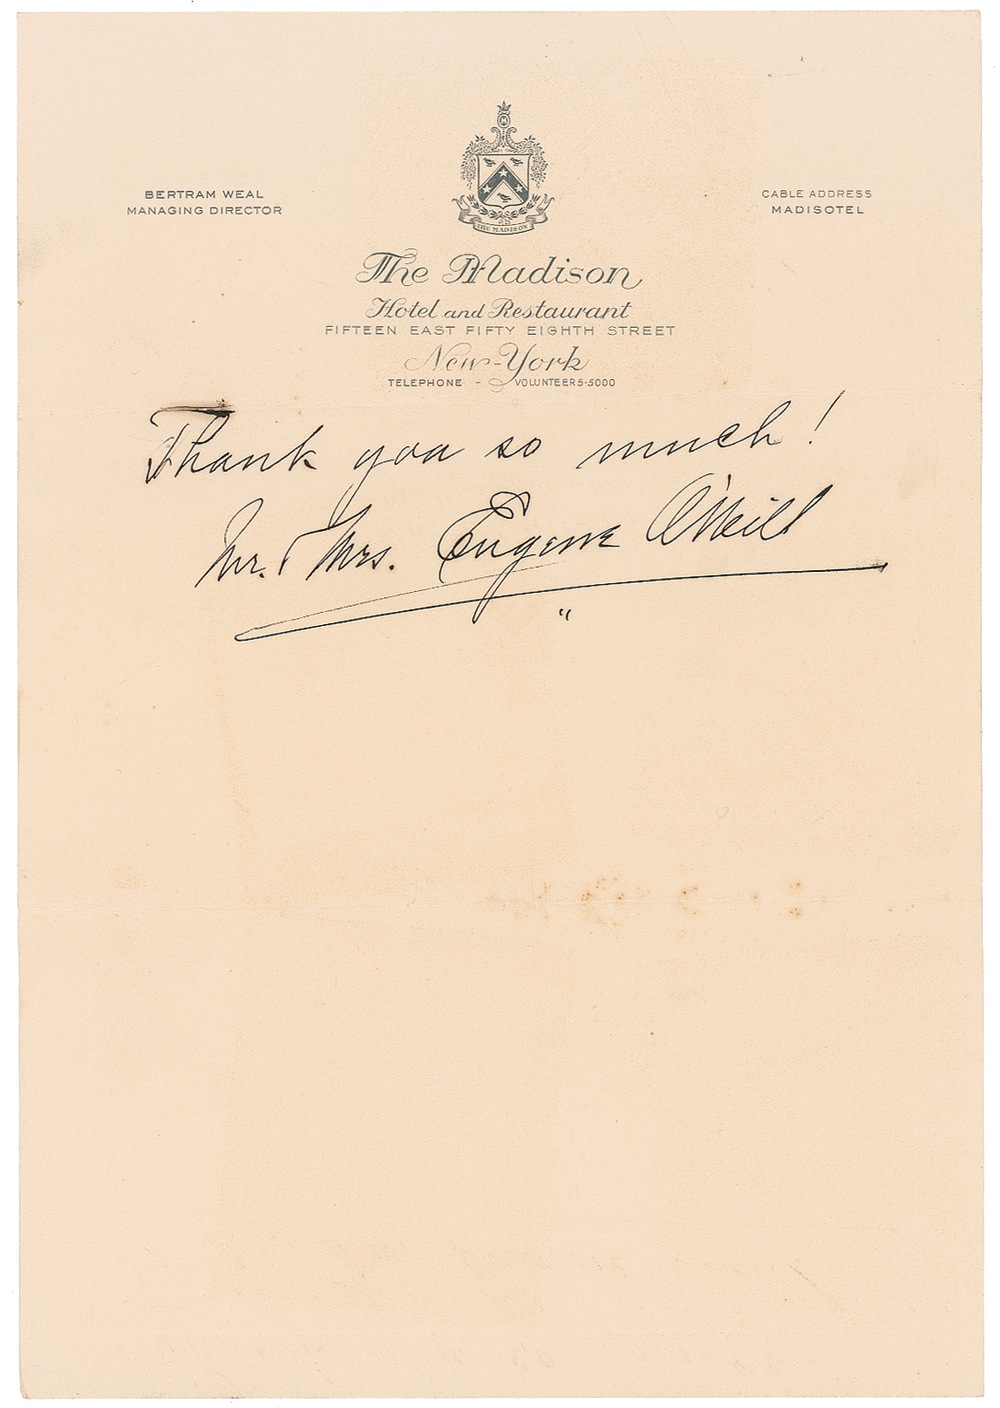 THE MADISON
BERTRAM WEAL
MANAGING DIRECTOR
CABLE ADDRESS
MADISOTEL
The Madison
Hotel and Restaurant
FIFTEEN EAST FIFTY EIGHTH STREET
New-York
TELEPHONE - VOLUNTEER 5-5000
Thank you so much!
Mr. & Mrs. Eugene O'Neill
"